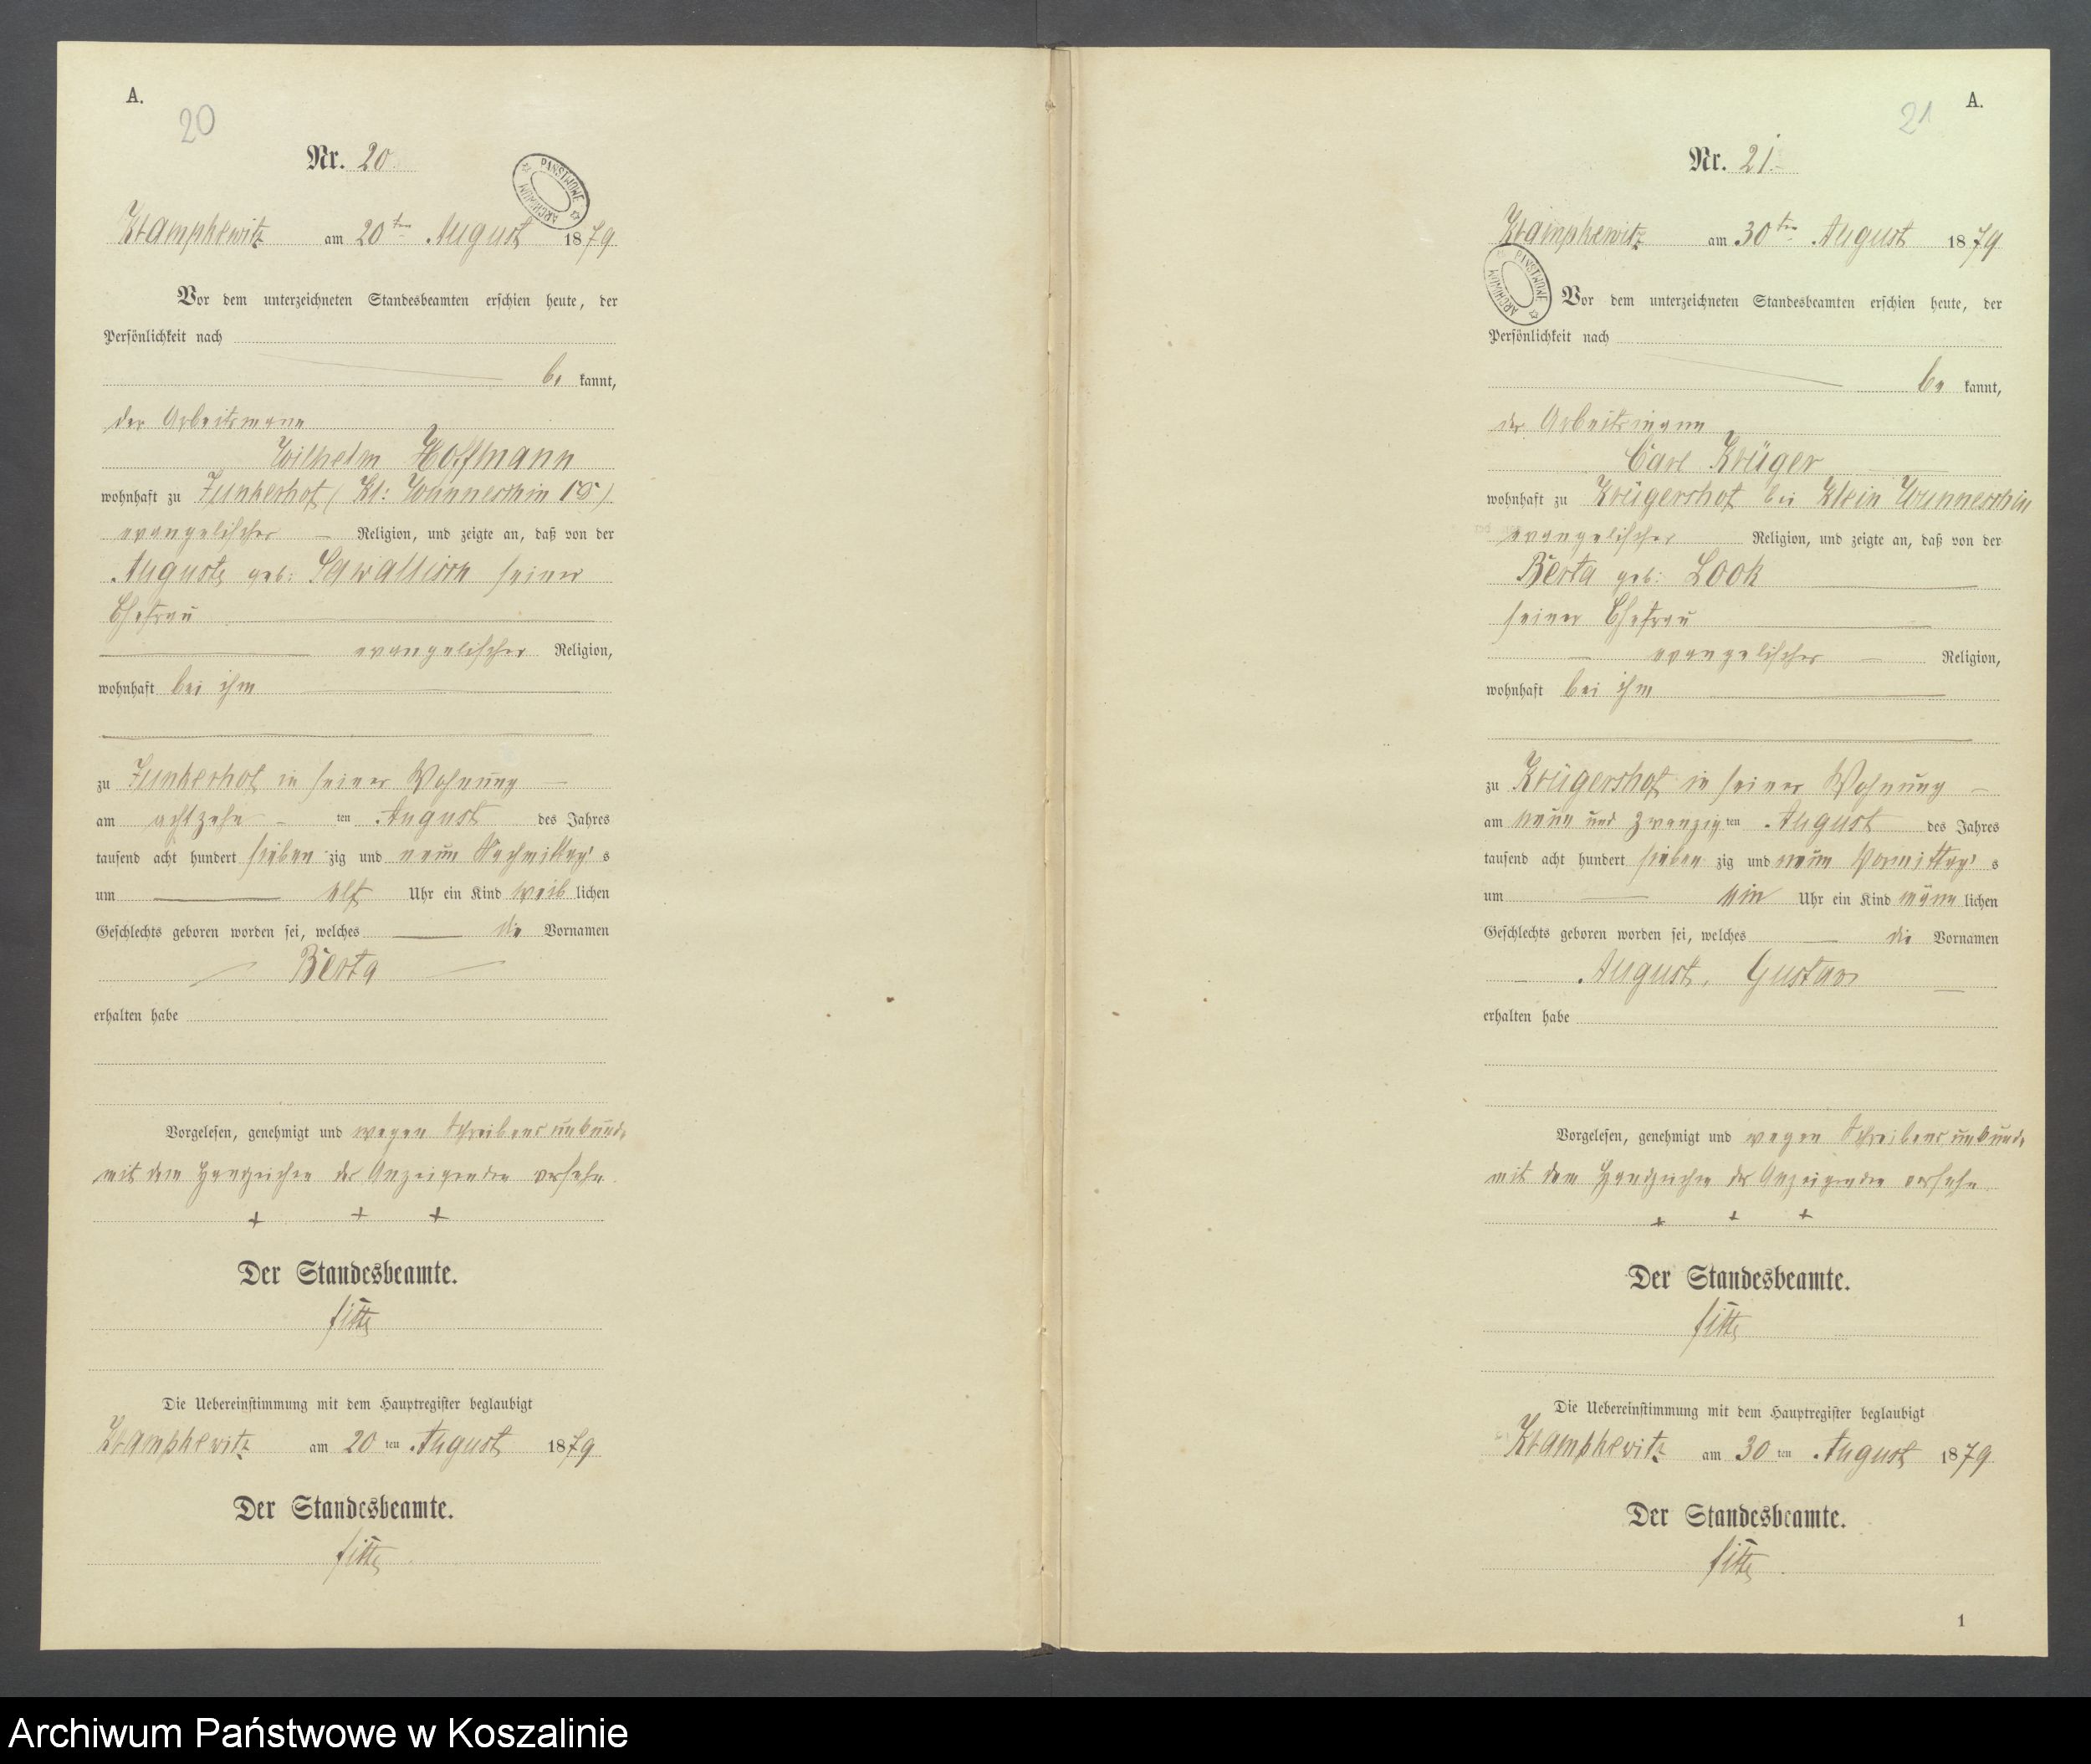 A.
20
Nr. 20.
PAŃSTWOWE ARCHIWUM
Krampkewitz am 20ten August 1879
Vor dem unterzeichneten Standesbeamten erschien heute, der
Persönlichkeit nach
be kannt,
der Arbeitsmann
Wilhelm Hoffmann
wohnhaft zu Junkerhof (Kl: Wunneschin
evangelischer Religion, und zeigte an, daß von der
Auguste geb: seiner
Ehefrau
evangelischer Religion,
wohnhaft bei ihm
zu Junkerhof in seiner Wohnung
am achtzehn ten August des Jahres
tausend acht hundert sieben zig und neun Nachmittag's
um elf Uhr ein Kind weib lichen
Geschlechts geboren worden sei, welches die Vornamen
Berta
erhalten habe
Vorgelesen, genehmigt und wegen Schreibensunkunde
mit dem Handzeichen des Anzeigenden versehn.
+ + +
Der Standesbeamte.
Die Uebereinstimmung mit dem Hauptregister beglaubigt
Krampkewitz am 20 ten August 1879
Der Standesbeamte.
A.
21
Nr. 21.
PAŃSTWOWE ARCHIWUM
Krampkewitz am 30ten August 1879
Vor dem unterzeichneten Standesbeamten erschien heute, der
Persönlichkeit nach
be kannt,
der Arbeitsmann
Carl Krüger
wohnhaft zu Krügershof bei Klein Wunneschin
evangelischer Religion, und zeigte an, daß von der
Berta geb: Look
seiner Ehefrau
evangelischer Religion,
wohnhaft bei ihm
zu Krügershof in seiner Wohnung
am neun und zwanzig ten August des Jahres
tausend acht hundert sieben zig und neun Vormittag's
um ein Uhr ein Kind männ lichen
Geschlechts geboren worden sei, welches die Vornamen
August, Gustav
erhalten habe
Vorgelesen, genehmigt und wegen Schreibensunkunde
mit dem Handzeichen des Anzeigenden versehn
+ + +
Der Standesbeamte.
Die Uebereinstimmung mit dem Hauptregister beglaubigt
Krampkewitz am 30 ten August 1879
Der Standesbeamte.
1
Archiwum Państwowe w Koszalinie